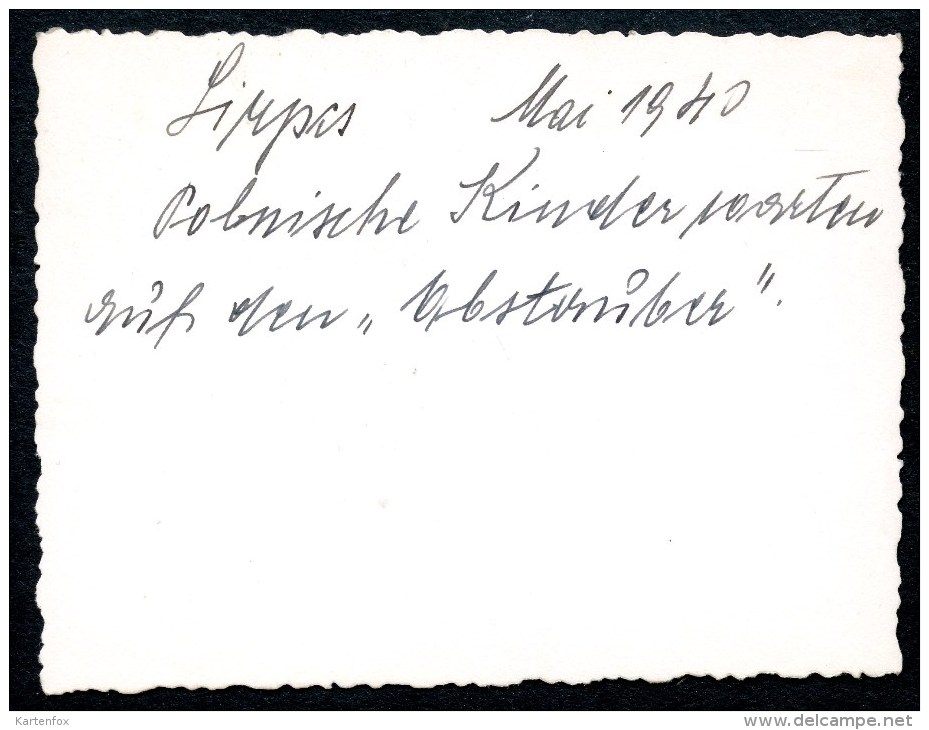 Sirpcs Mai 1940
Polnische Kinder warten
auf den „Abstauber".
Kartenfox
www.delcampe.net